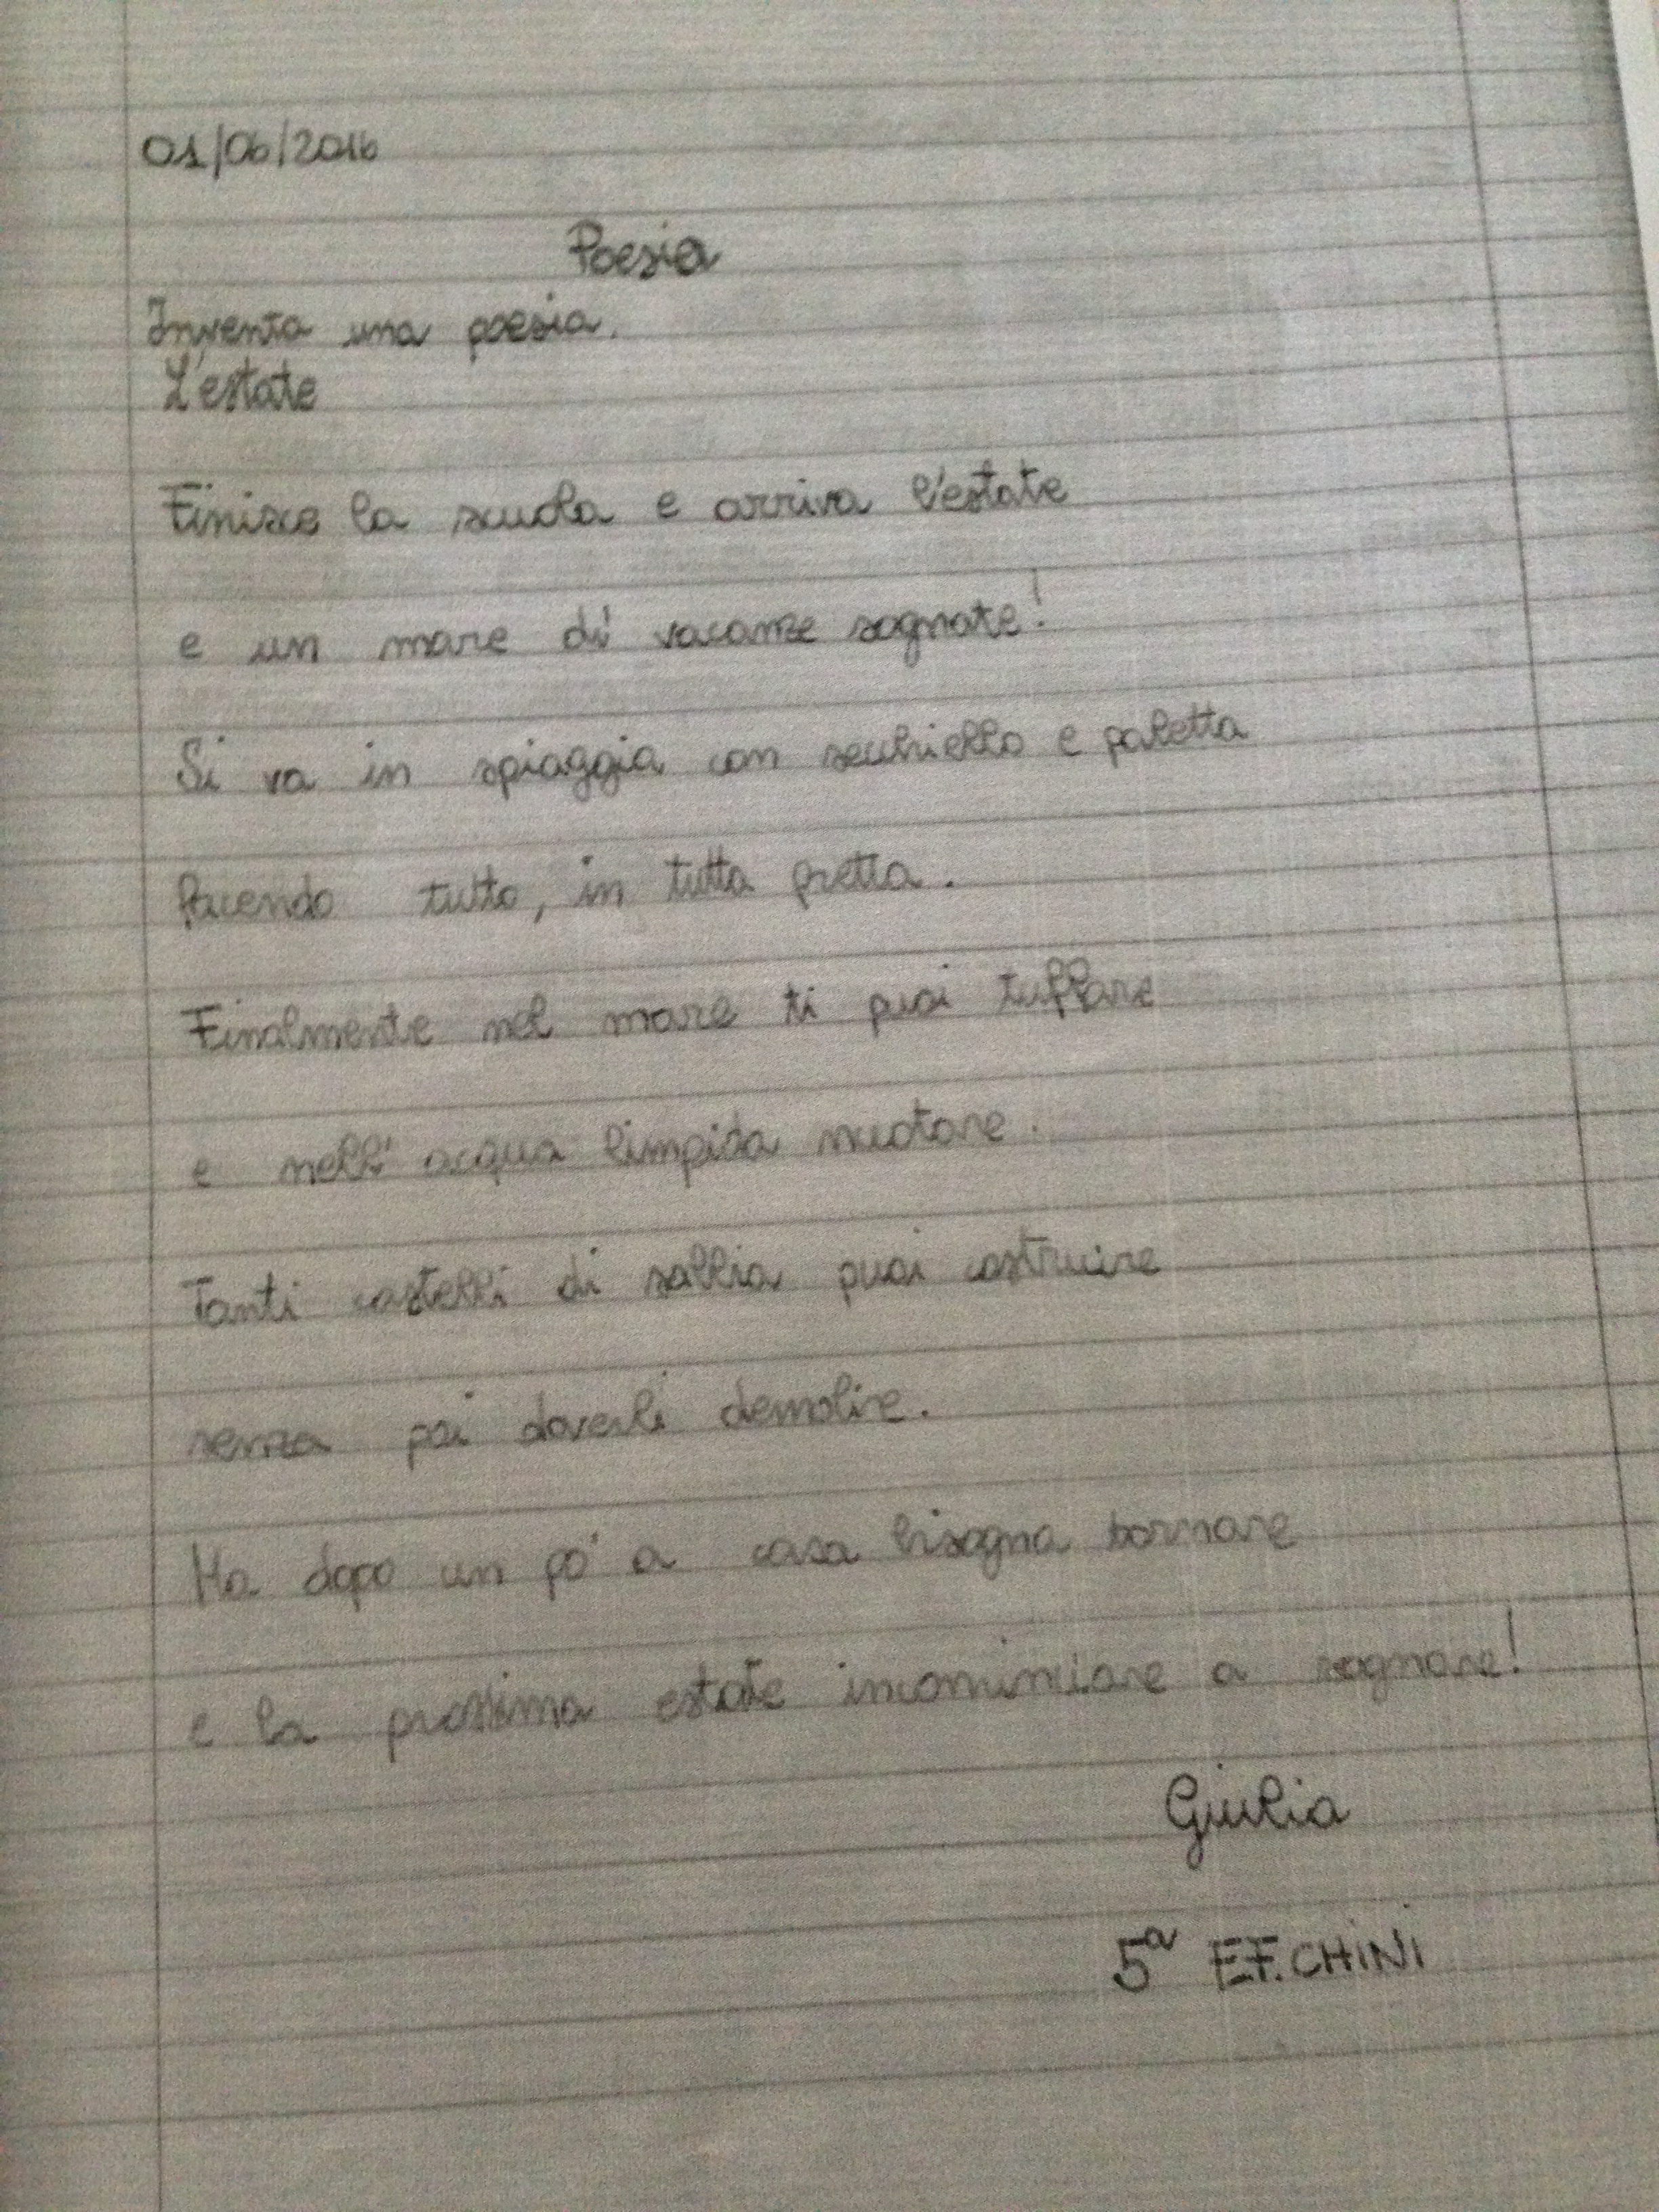 01/06/2016
Poesia
Inventa una poesia.
L'estate
Finisce la scuola e arriva l'estate
e un mare di vacanze sognate!
Si va in spiaggia con secchiello e paletta
facendo tutto, in tutta fretta.
Finalmente nel mare ti puoi tuffare
e nell' acqua limpida nuotare.
Tanti castelli di sabbia puoi costruire
senza poi doverli demolire.
Ma dopo un po' a casa bisogna tornare
e la prossima estate incominciare a sognare!
Giulia
5ª E F. CHINI